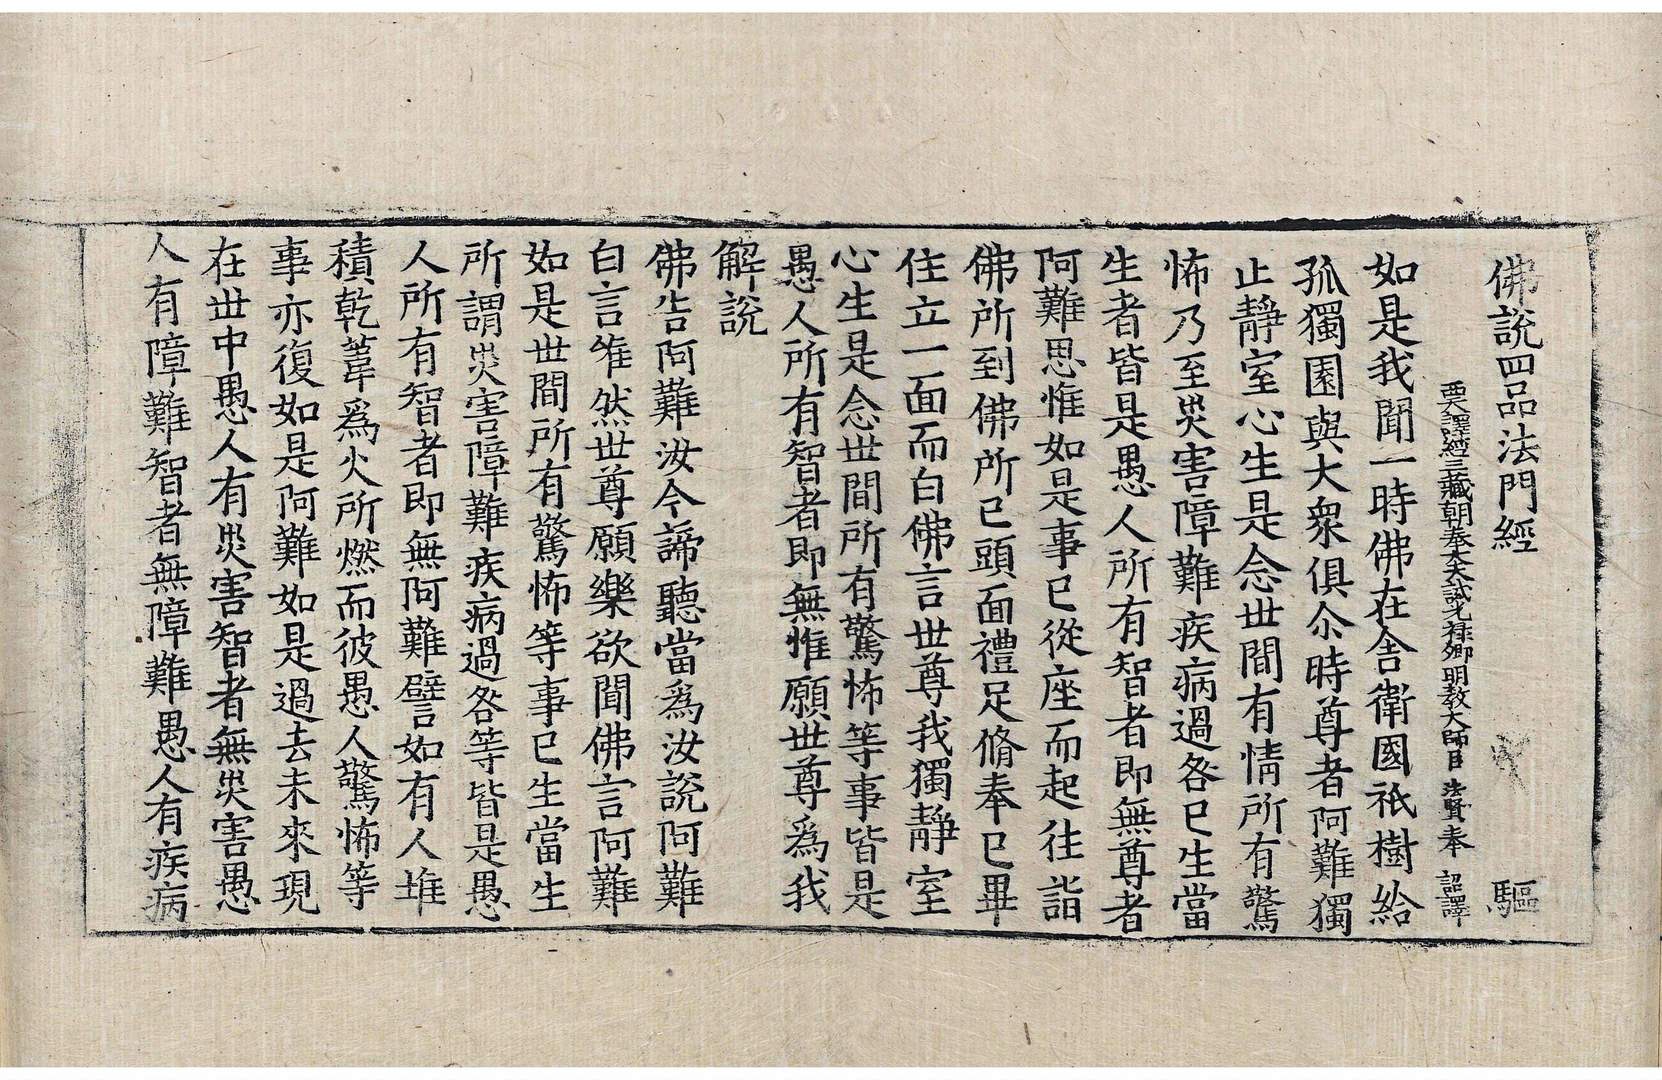 佛說四品法門經 驅
西天譯經三藏朝奉大夫試光祿卿明教大師臣法賢奉 詔譯
如是我聞一時佛在舍衛國祇樹給
孤獨園與大衆俱尒時尊者阿難獨
止靜室心生是念世間有情所有驚
怖乃至災害障難疾病過咎已生當
生者皆是愚人所有智者即無尊者
阿難思惟如是事已從座而起往詣
佛所到佛所已頭面禮足脩奉已畢
住立一面而白佛言世尊我獨靜室
心生是念世間所有驚怖等事皆是
愚人所有智者即無惟願世尊爲我
解說
佛告阿難汝今諦聽當爲汝說阿難
白言唯然世尊願樂欲聞佛言阿難
如是世間所有驚怖等事已生當生
所謂災害障難疾病過咎等皆是愚
人所有智者即無阿難譬如有人堆
積乾葦爲火所燃而彼愚人驚怖等
事亦復如是阿難如是過去未來現
在世中愚人有災害智者無災害愚
人有障難智者無障難愚人有疾病